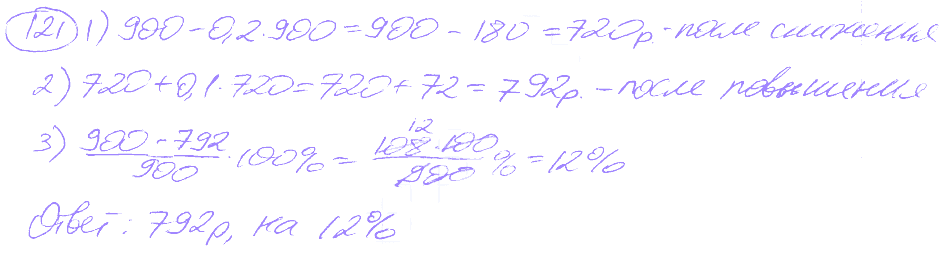 121 1) 900 - 0,2·900 = 900 - 180 = 720р. - после снижения
2) 720 + 0,1·720 = 720 + 72 = 792р. - после повышения
3) (900 - 792)/900 · 100% = (108·100)/900 % = 12%
12
Ответ: 792р, на 12%